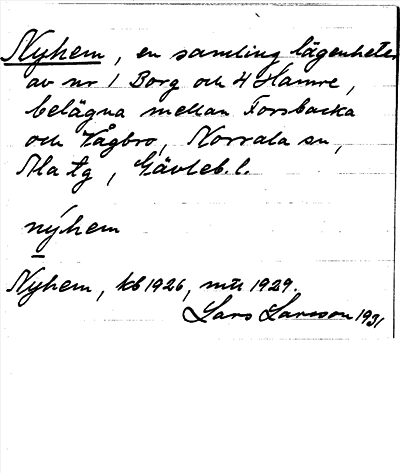 Nyhem, en samling lägenheter
av nr 1 Borg och 4 Hamre,
belägna mellan Forsbacka
och Vågbro, Norrala sn,
Ala tg, Gävleb. l.
nýhem
Nyhem, kb 1926, mtl 1929.
Lars Larsson 1931